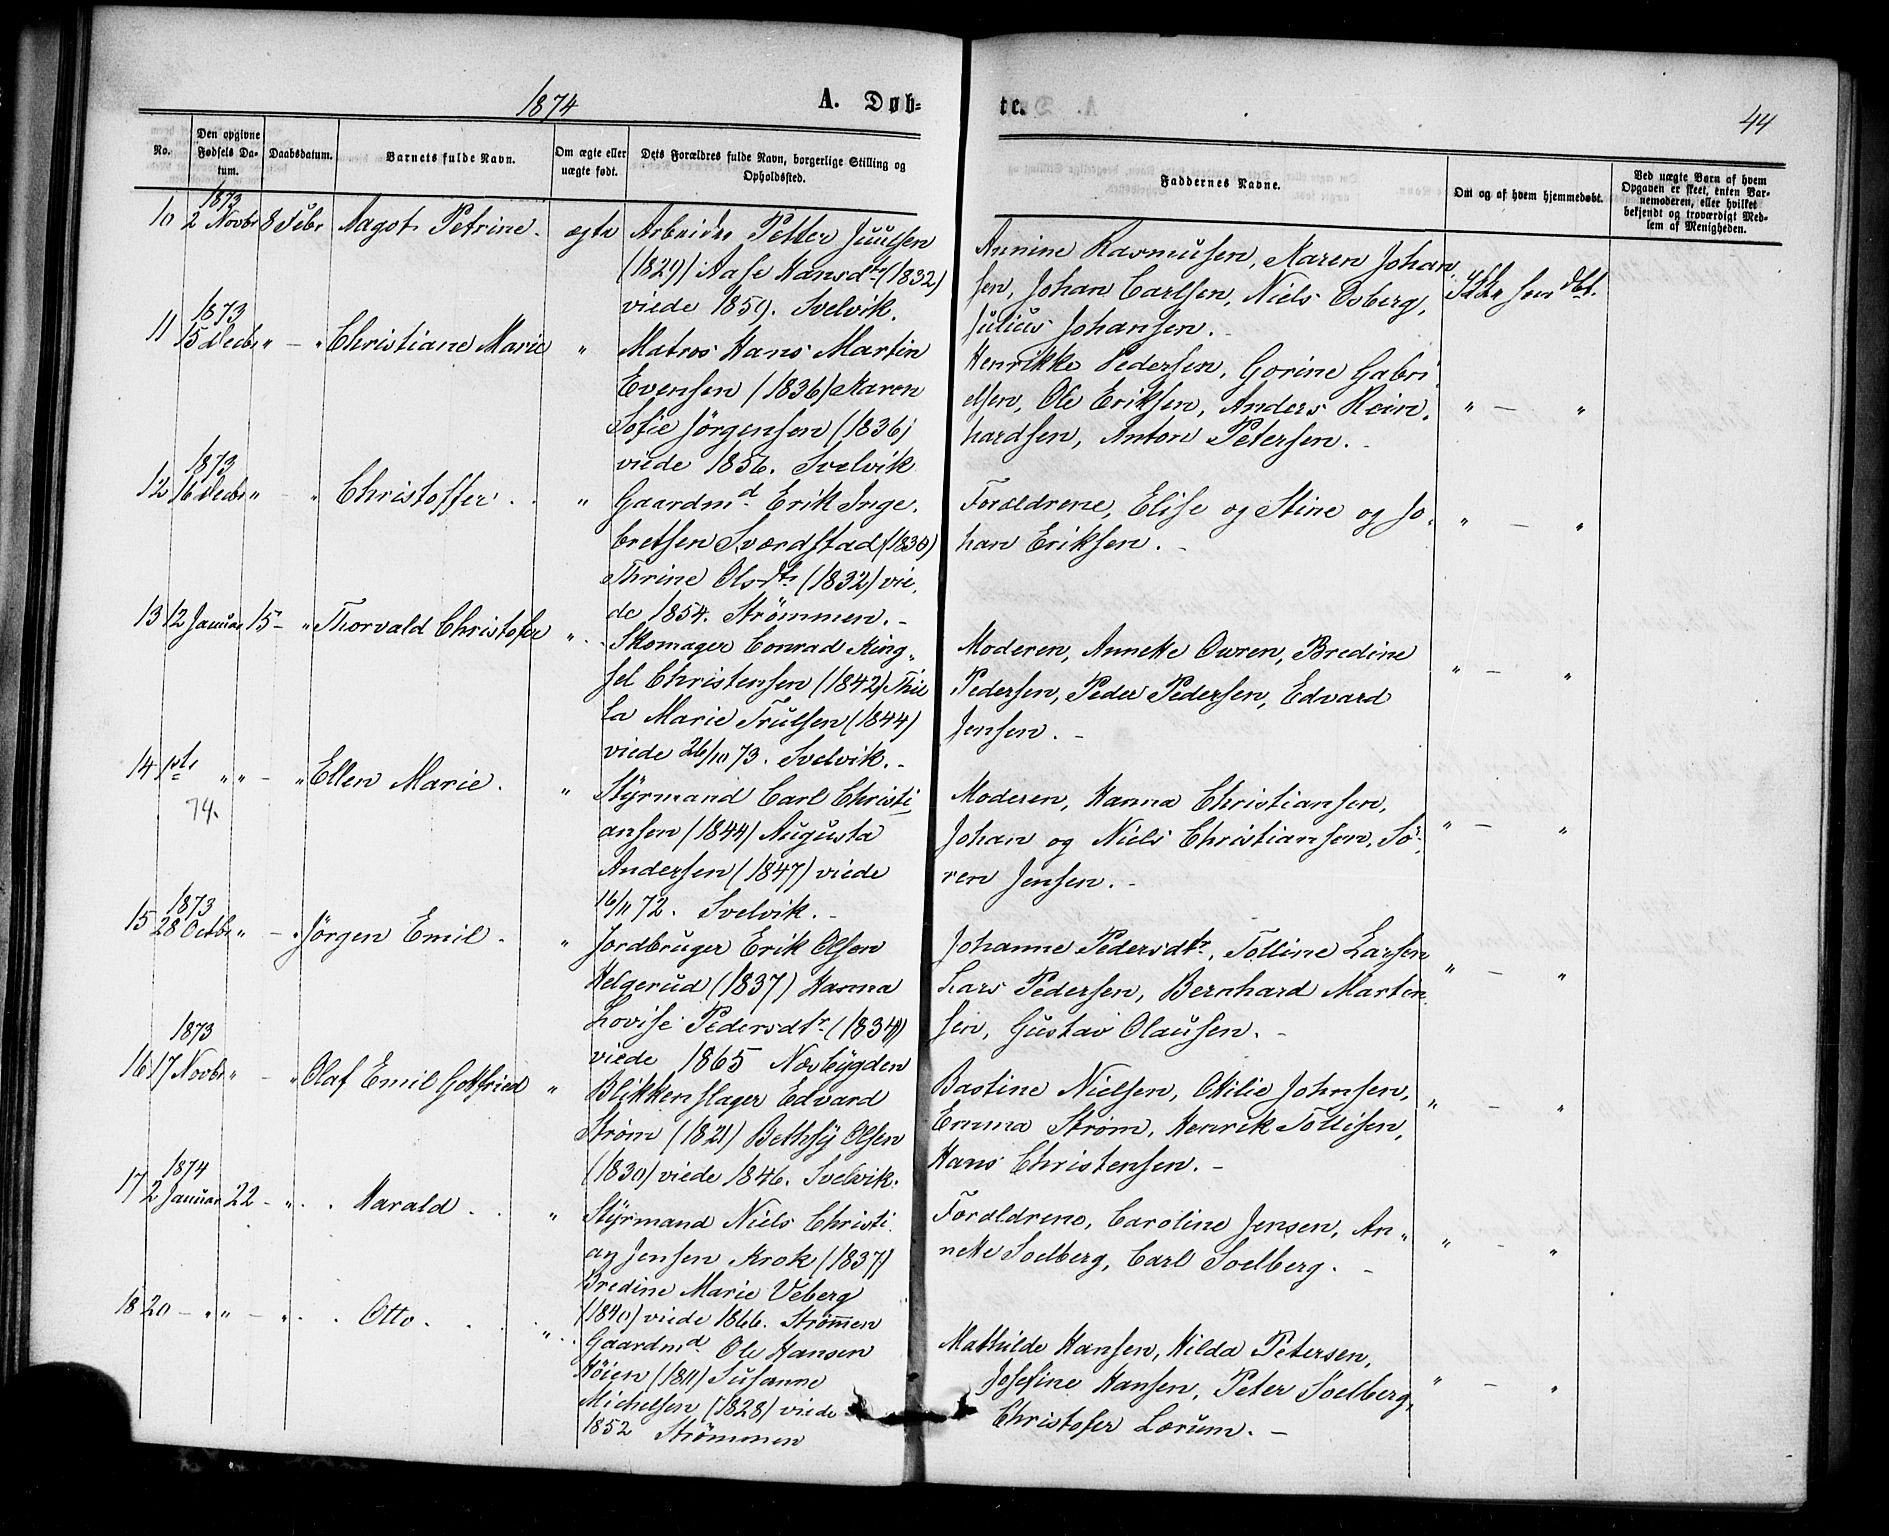 1874 A. Døb- te. 44
No.
Den opgivne Fødsels Da-tum.
Daabsdatum.
Barnets fulde Navn.
Om ægte eller uægte født.
Dets Forældres fulde Navn, borgerlige Stilling og Opholdssted.
Faddernes Navne.
Om og af hvem hjemmedøbt.
Ved uægte Barn af hvem Opgaven er skeet, enten Bar-nemoderen, eller hvilket bekjendt og troværdigt Med-lem af Menigheden.
1873
10 2 Novbr 8 Febr Aagot Petrine. ægte Arbeider Petter Juulsen
(1829) Aase Hansdtr (1832)
viede 1859. Svelvik.
Annine Rasmussen, Maren Johan
sen, Johan Carlsen, Niels Osberg,
Julius Johansen.
Ikke hem dbt.
1873
11 15 Decbr " — " Christiane Marie " Matros Hans Martin
Evensen (1836) Maren
Sofie Jørgensen (1836)
viede 1856. Svelvik
Henrikke Pedersen, Gorine Gabri
elsen, Ole Eriksen, Anders Rein,
hardsen, Anton Petersen. -
" — "
1873
12 16 Decbr " — " Christoffer. " Gaardmd Erik Inge.
bretsen Sværdstad (1830)
Thrine Olsdtr (1832) vie,
de 1854. Strömmen. -
Forældrene, Elise og Stine og Jo,
han Eriksen. -
" — "
13 12 Januar 15 - " Thorvald Christofer " Skomager Conrad Ring,
sel Christensen (1842)
la Marie Trulsen (1844)
viede 26/10 73. Svelvik. -
Moderen, Annette Owren, Bredine
Pedersen, Peder Pedersen, Edvard
Jensen. -
" — "
14 1ste " " — " Ellen Marie. " Styrmand Carl Christi
74.
ansen (1844) Augusta
Andersen (1847) viede
16/11 72. Svelvik. -
Moderen, Hanna Christiansen,
Johan og Niels Christiansen, Sö,
ren Jensen. -
" — "
1873
15 28 Octbr " — " Jørgen Emil. " Jordbruger Erik Olsen
Helgerud (1837) Hanna
Lovise Pedersdtr. (1834)
viede 1865 Næsbygden
Johanne Pedersdtr, Tolline Larsen
Lars Pedersen, Bernhard Marten
sen, Gustav Olausen. -
" — "
1873
16 17 Novbr " — " Olaf Emil Gotfried " Blikkenslager Edvard
Strøm (1821) Bethsy Olsen
(1830) viede 1846. Svelvik.
Bastine Nielsen, Otilie Johnsen,
Emma Strøm, Henrik Tollisen,
Hans Christensen. -
" — "
1874
17 2 Januar 22 - " Harald " Styrmand Niels Christi
an Jensen Krok (1837)
Bredine Marie Veberg
(1840) viede 1866. Strømmen
Forældrene, Caroline Jensen, An,
nette Soelberg, Carl Soelberg. -
" — "
18 20 — " " — " Otto. " Gaardmd Ole Hansen
Høien (1811) Susanne
Michelsen (1828) viede
1852 Strømmen
Mathilde Hansen, Hilda Petersen,
Josefine Hansen, Peter Soelberg,
Christofer Lærum. -
" — "